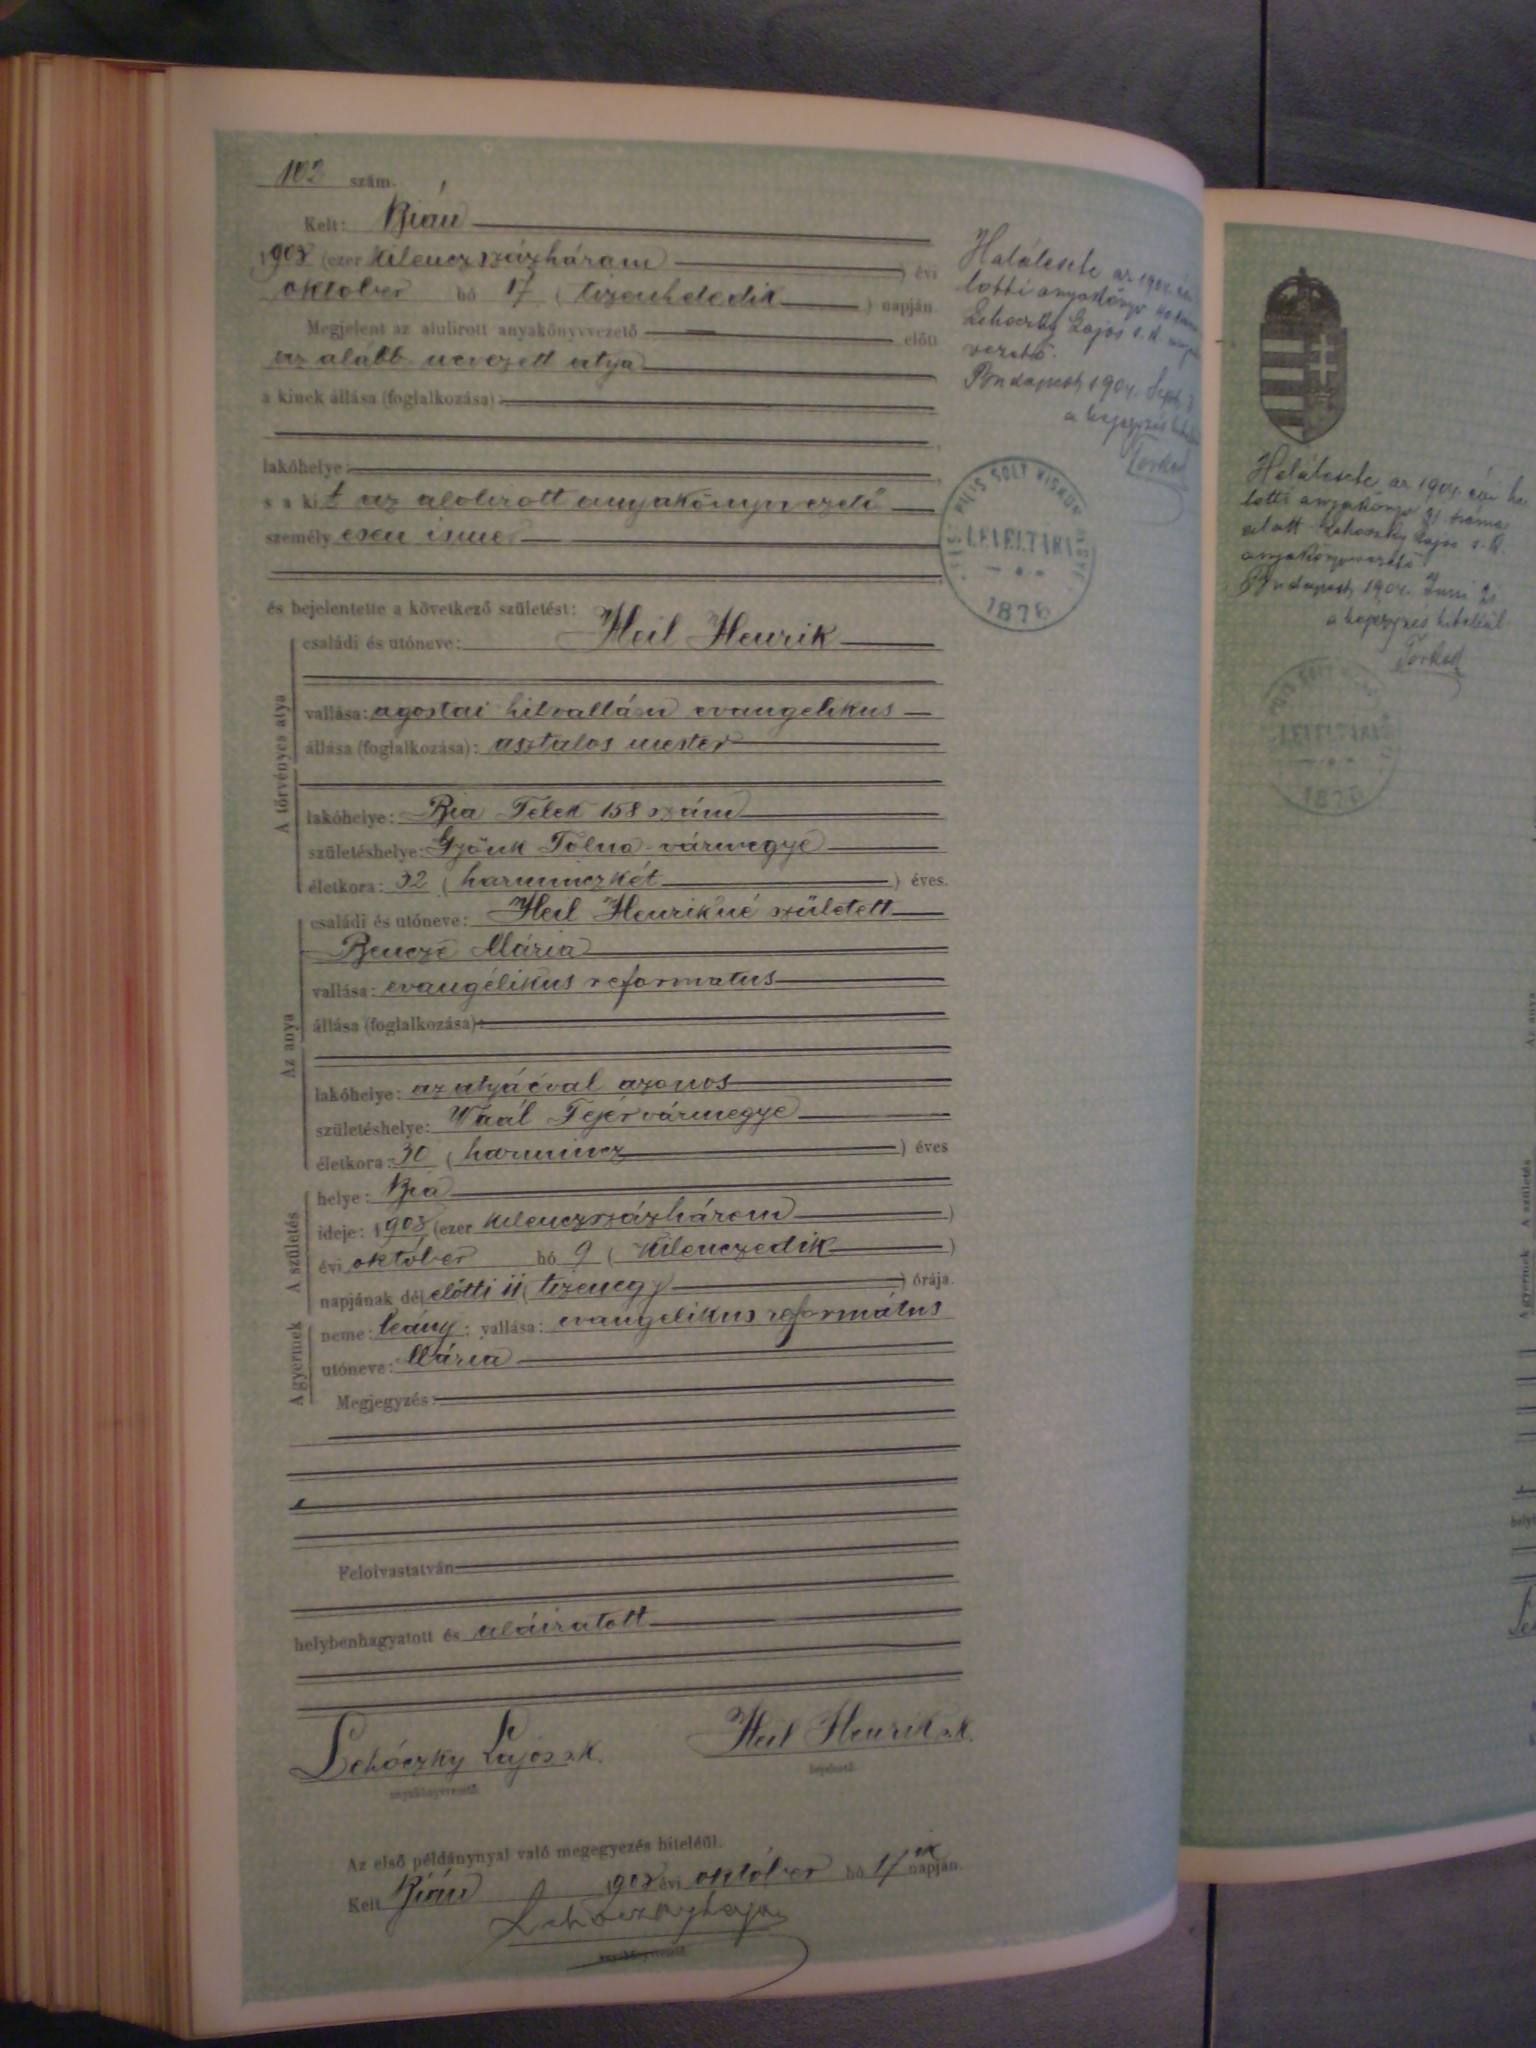 102 szám.
Kelt: Bián
1903 (ezer kilenczszázhárom) évi
október hó 17 (tizenhetedik) napján.
Megjelent az alulirott anyakönyvvezető előtt
az alább nevezett atya
a kinek állása (foglalkozása):
lakóhelye:
s a kit az alolirott anyakönyvvezető
személyesen ismer
és bejelentette a következő születést:
A törvényes atya
családi és utóneve: Heil Henrik
vallása: agostai hitvallásu evangelikus
állása (foglalkozása): asztalos mester
lakóhelye: Bia Telek 158 szám
születéshelye: Gyönk Tolna-vármegye
életkora: 32 (harminczkét) éves.
Az anya
családi és utóneve: Heil Henrikné született
Bencze Mária
vallása: evangélikus reformatus
állása (foglalkozása):
lakóhelye: az atyáéval azonos
születéshelye: Waál Fejérvármegye
életkora: 30 (harmincz) éves
A születés
helye: Bia
ideje: 1903 (ezer kilenczszázhárom)
évi október hó 9 (kilenczedik)
napjának délelőtti 11 (tizenegy) órája.
A gyermek
neme: leány; vallása: evangelikus református
utóneve: Mária
Megjegyzés:
Felolvastatván
helybenhagyatott és aláiratott
Lehóczky Lajos s.k. Heil Henrik s.k.
anyakönyvvezető. bejelentő.
Az első példánynyal való megegyezés hiteléül.
Kelt Bián 1903 évi október hó 17 ik napján.
Lehóczky Lajos
anyakönyvvezető.
Halálesete az 1904. évi
lotti anyakönyv
Lehoczky Lajos s.k.
vezető.
Budapest, 1904. Sept.
a bejegyzés
PILIS SOLT KISKUN
LEVÉLTÁRA
1876
Halálesete az 1904. évi ha
lotti anyakönyv 91 száma
alatt Lehoczky Lajos s.k.
anyakönyvvezető
Budapest, 1904. Juni 21
a bejegyzés hiteléül
LEVÉLTÁRA
1876
Az anya
A születés
A gyermek